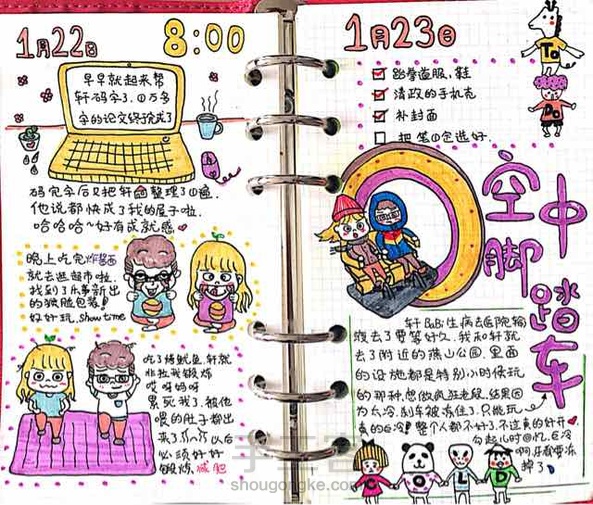 1月22日 8:00
早早就起来帮
轩码字了.①万多
字的论文终于完成了
码完字后又把轩 整理了①遍.
他说都快成了我的屋子啦.
哈哈哈~好有成就感
晚上吃完炸酱面
就去逛超市啦.
找到了乐事新出
的猴脸包装!
好好玩.Show time
吃了烤鱿鱼.轩就
非拉我锻炼
哎呀妈呀
累死我了.被他
喂的肚子都出
来了 以后
必须好好
锻炼.减肥
1月23日
跆拳道服、鞋
清政的手机壳
补封面
把笔①定选好.
To
Do
空中脚踏车
轩BaBi生病去医院输
液去了要等好久.我和轩就
去了附近的燕山公园.里面
的设施都是特别小时候玩
的那种.想做疯狂老鼠.结果因
为太冷.刹车被冻住了.只能玩
真的白冷!整个人都不好了.不过真的好开
勾起儿时回忆.太冷
啊.牙都要冻
掉了
COLD
手工客
shougongke.com